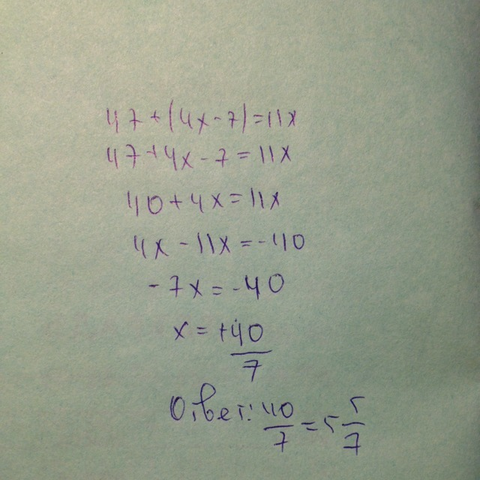 47+(4x-7)=11x
47+4x-7=11x
40+4x=11x
4x-11x=-40
-7x=-40
x=+40/7
Ответ: 40/7=5 5/7